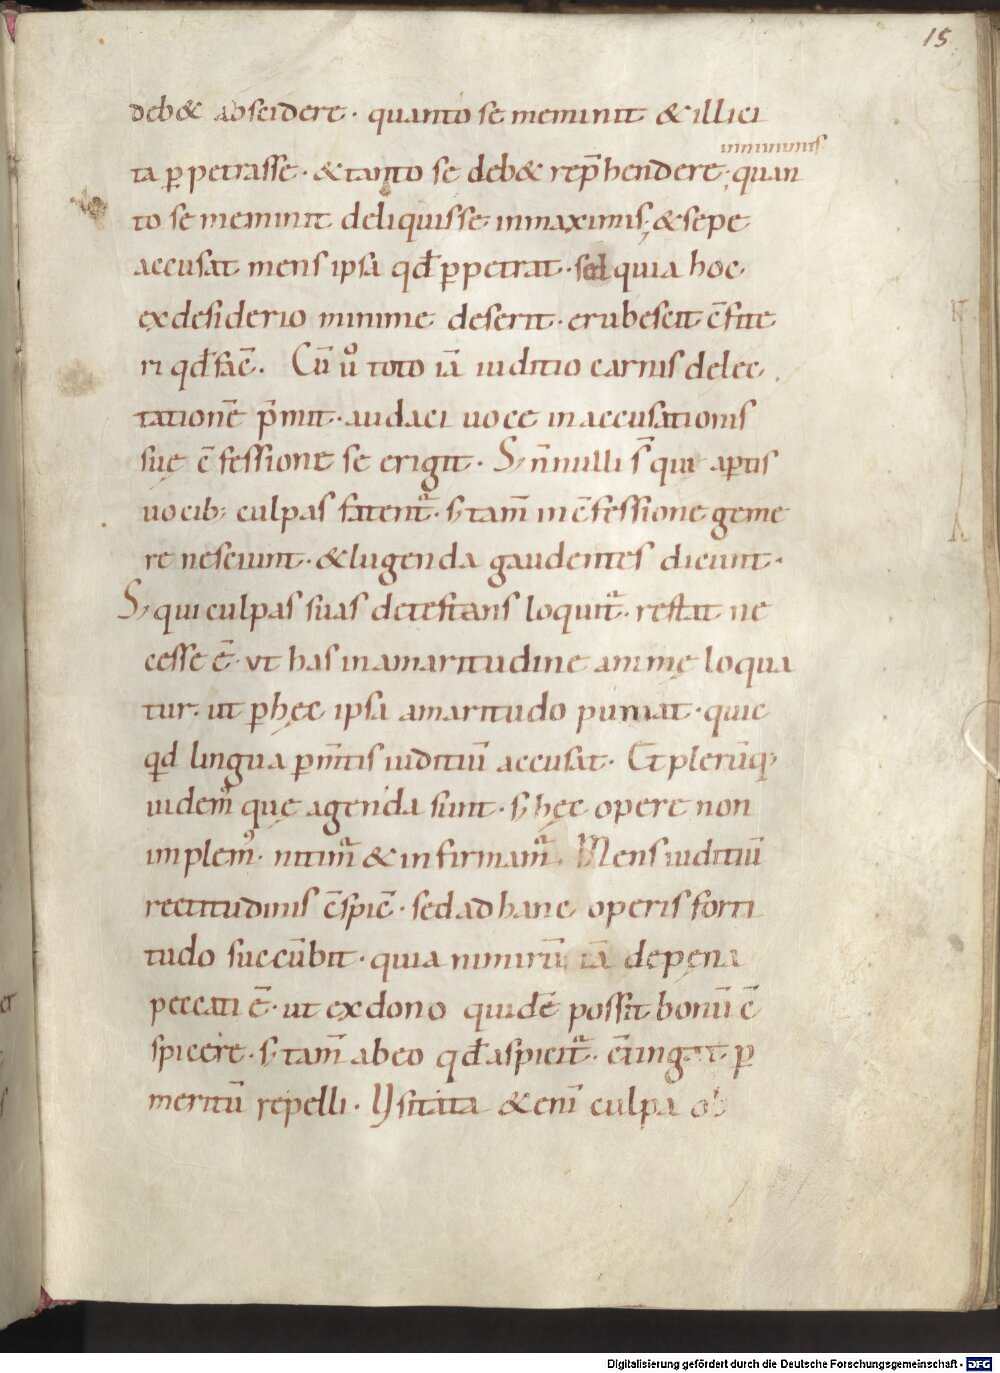 15
deb& abscidere · quanto se meminit & illici
in minimis
ta ꝑpetrasse · & tanto se deb& rep̄hendere · quan
to se meminit deliquisse in maximis; & sepe
accusat mens ipsa qđ ꝑpetrat · sed quia hoc
ex desiderio minime deserit · erubescit c̄fite
ri qđ fac̄. Cū ů toto iā iuditio carnis delec
tationē p̄mit · audaci uoce in accusationis
suę c̄fessione se erigit · S; ñnulli s̄ qui aꝑtis
uocib; culpas fatent᷑ · s; tam̄ in c̄fessione geme
re nesciunt · & lugenda gaudentes dicunt ·
S; qui culpas suas detestans loquit᷑ · restat ne
cesse ē · ut has in amaritudine animę loqua
tur · ut ꝑ hęc ipsa amaritudo puniat · quic
qd lingua ꝑ m̄tis iuditiū accusat · Et plerūq;
uidem᷒ quę agenda sunt · s; hęc opere non
implem᷒ · nitim᷑ & infirmam᷑ · Mens iuditiū
rectitudinis c̄spic̄ · sed ad hanc operis forti
tudo succūbit · quia nimirū iā de pęna
peccati ē · ut ex dono quidē possit bonū c̄
spicere · s; tam̄ ab eo qđ aspicit᷑ · c̄tingat ꝑ
meritū repelli · Usitata & enī culpa ob
Digitalisierung gefördert durch die Deutsche Forschungsgemeinschaft - DFG